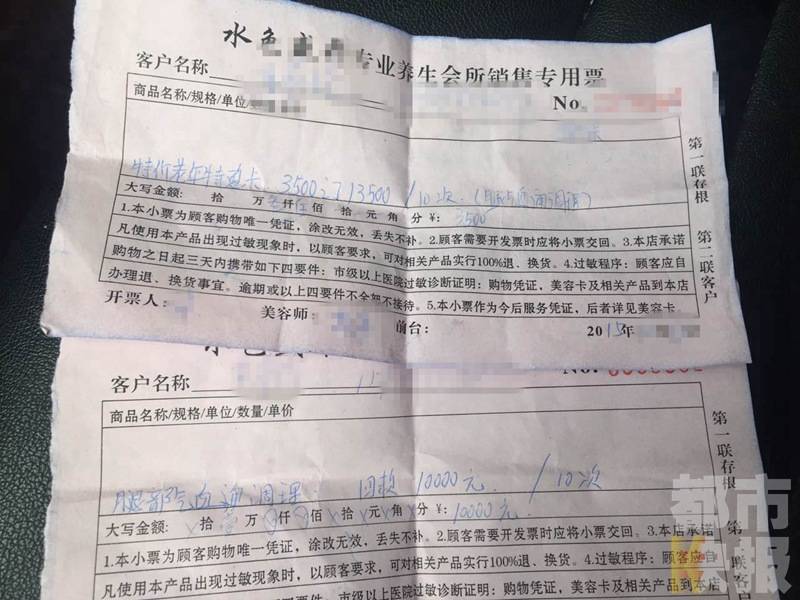 水色 专业养生会所销售专用票
客户名称
商品名称/规格/单位/
No.
特价老年特惠卡 3500 13500 /10次
大写金额: 拾 万 仟 佰 拾 元 角 分 ¥: 3500
1.本小票为顾客购物唯一凭证,涂改无效,丢失不补。2.顾客需要开发票时应将小票交回。3.本店承诺
凡使用本产品出现过敏现象时,以顾客要求,可对相关产品实行100%退、换货。4.过敏程序:顾客应自
购物之日起三天内携带如下四要件:市级以上医院过敏诊断证明;购物凭证,美容卡及相关产品到本店
办理退、换货事宜。逾期或以上四要件不全恕不接待。5.本小票作为今后服务凭证,后者详见美容卡。
开票人: 美容师: 前台: 2015年
第一联存根 第二联客户
客户名称
No.
商品名称/规格/单位/数量/单价
腿部气血通调理 回款 10000元 /10次
大写金额: 拾壹万 仟 佰 拾 元 角 分 ¥: 10000元
1.本小票为顾客购物唯一凭证,涂改无效,丢失不补。2.顾客需要开发票时应将小票交回。3.本店承诺
凡使用本产品出现过敏现象时,以顾客要求,可对相关产品实行100%退、换货。4.过敏程序:顾客应自
购物之日起三天内携带如下四要件:市级以上医院过敏诊断证明:购物凭证,美容卡及相关产品到本店
第一联存根 第二联客户
都市快报